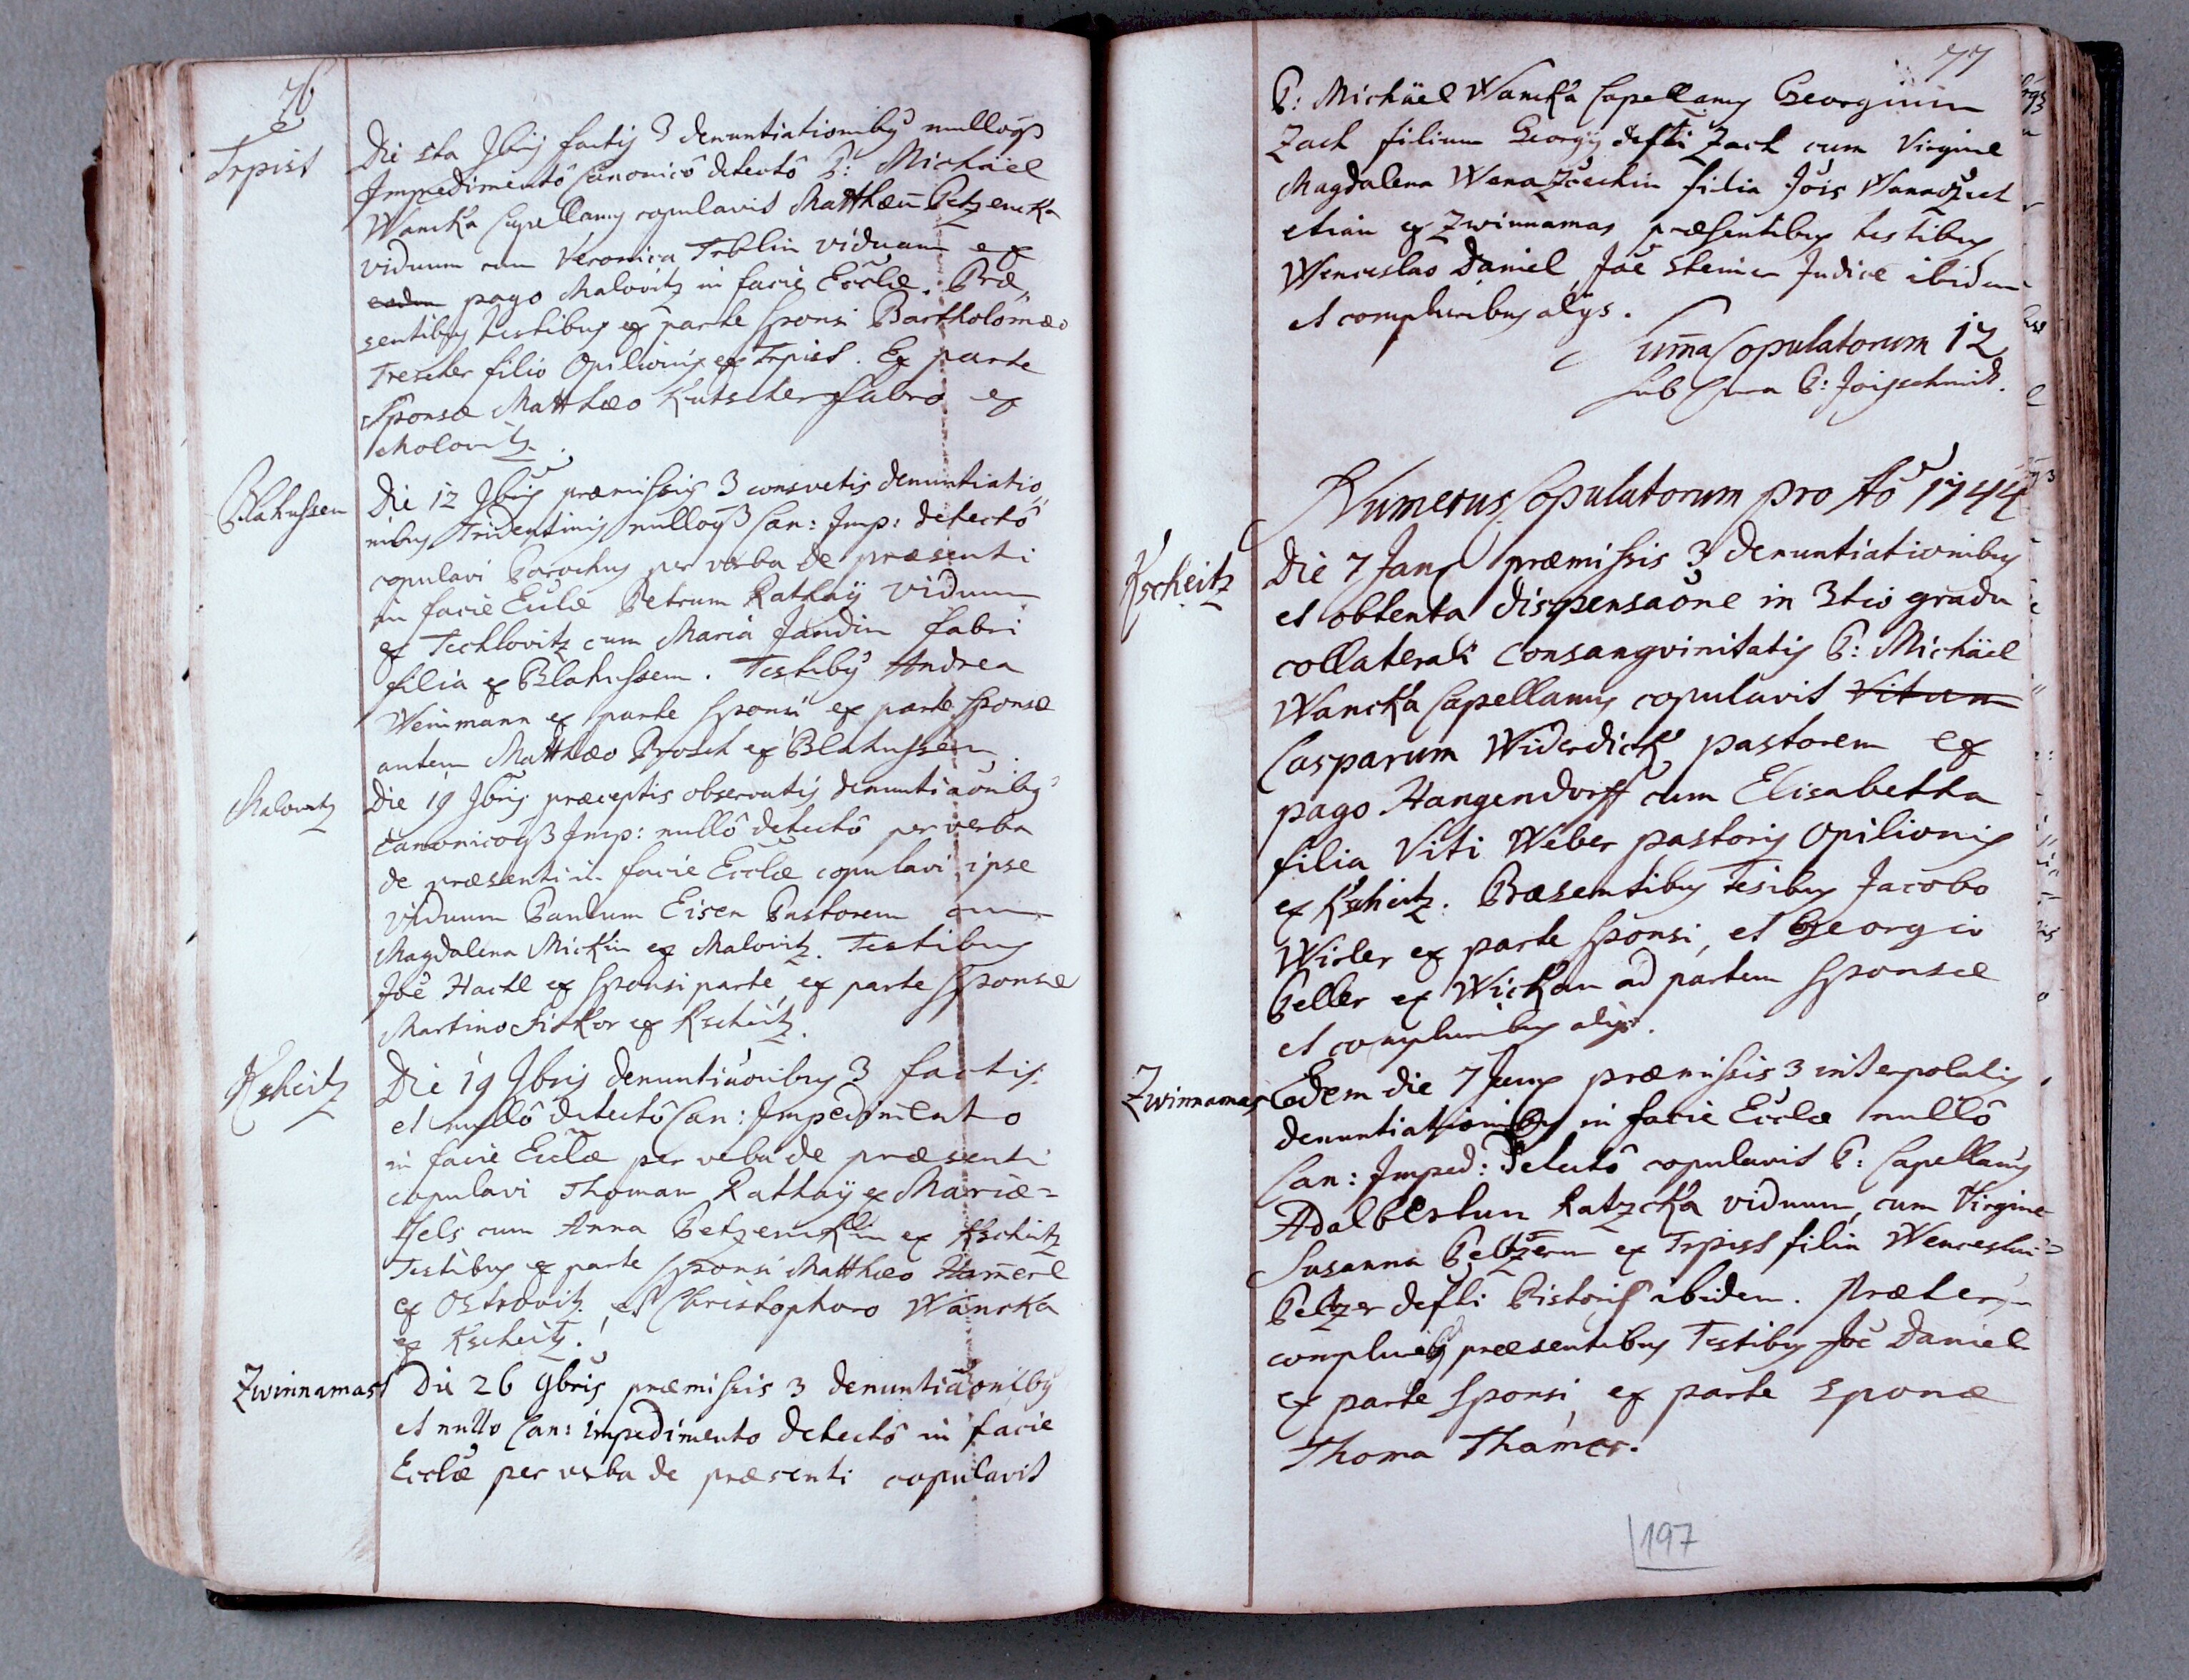 76
Trpist
Die 5ta 9bris factis 3 denuntiationibus nulloqȝ
Impedimentô Canonicô detectô P: Michäel
Wancka Capellanus copulavit Matthæū Petzencka
viduum cum Veronica Treblin viduam ex
eodem pago Malovitz in facie Ecclæ. Præ„
sentibus testibus ex parte sponsi Bartholomæo
Trescher filio Opilionis ex Trpist. Ex parte
Sponsæ Matthæo Kutscher fabro ex
Malovitz.
Blahussen
Die 12 9bris præmissis 3 consvetis denuntiatio„
nibus Tridentinis nulloqȝ Can: Imp: detectô
copulavi Parochus per verba de præsenti
in facie Ecclæ Petrum Rathaÿ viduum
ex Techlovitz cum Maria Jandin fabri
filia ex Blahussen. Testibus Andrea
Weinmann ex parte sponsi ex parte sponsæ
autem Matthæo Brosch ex Blahussen
Malovitz
Die 19 9bris præceptis observatis denuntiaōnibus
canonicoqȝ Imp: nullô detectô per verba
de præsenti in facie Ecclæ copulavi ipse
viduum Paulum Eisen Pastorem cum
Magdalena Mickin ex Malovitz. Testibus
Joē Hartl ex sponsi parte, ex parte sponsæ
Martino Fiskor ex Kscheitz.
Kscheitz
Die 19 9bris denuntiaōnibus 3 factis
et nullô detectô Can: Impedimento
in facie Ecclæ per verba de præsenti
copulavi Thomam Rathaÿ ex Mariæ=
fels cum Anna Petzencklin ex Kscheitz
Testibus ex parte sponsi Matthæo Ham̄erl
ex Ostrovitz, et Christophoro Wancka
ex Kscheitz.
Zwinnamast
Die 26 9bris præmissis 3 denuntiaōnibus
et nullo Can: impedimento detectô in facie
Ecclæ per verba de præsenti copulavit
77
P: Michäel Wancka Capellanus Georgium
Zach filium Georgÿ defti Zach cum Virgine
Magdalena Wenazschechin filia Jois
etiam ex Zwinnamas præsentibus testibus
Wenceslao Daniel, Joē Steiner Judice ibidem
et compluribus alÿs.
Sum̄a Copulatorum 12
sub Cura P:
Numerus Copulatorum pro Ao 1744
Kscheitz
Die 7 Janȝ præmissis 3 denuntiationibus
et obtenta dispensaōne in 3tio gradu
collaterali consangvinitatis P: Michäel
Wancka Capellanus copulavit Vitum
Casparum Widerdick pastorem ex
pago Hangendorff cum Elisabetha
filia Viti Weber pastoris Opilionis
ex Kscheitz. Præsentibus Tesibus Jacobo
Wirler ex parte sponsi, et Georgio
Peller ex Wickau ad partem sponsæ
et compluribus alÿs.
Zwinnamas
Eodem die 7 Janȝ præmissis 3 interpolatis
denuntiationibus in facie Ecclæ nullô
Can: Imped: detectô copulavit P: Capellanus
Adalbertum Ratzcka viduum, cum Virgine
Susanna Peltzerin ex Trpist filia Wenceslai
Peltzer defti Pistoris ibidem. Præter
compluribus præsentibus Testibus Joē Daniel
ex parte Sponsi, ex parte sponæ
Thoma Thamer.
197